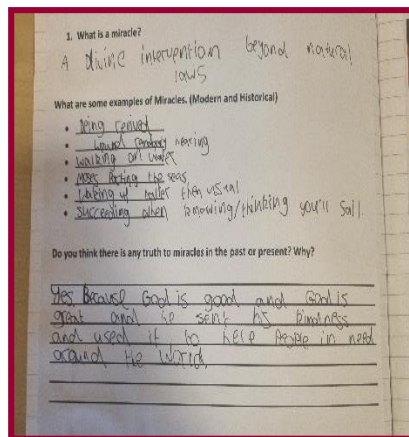 1. What is a miracle?
A divine intervention beyond natural
laws
What are some examples of Miracles. (Modern and Historical)
• Being revived
• wound randomly healing
• walking on water
• Moses Parting the seas
• Waking up earlier then usual
• Succeeding when knowing/thinking you'll fail.
Do you think there is any truth to miracles in the past or present? Why?
Yes Because God is good and God is
great and he sent his kindness
and used it to help People in need
around the World.